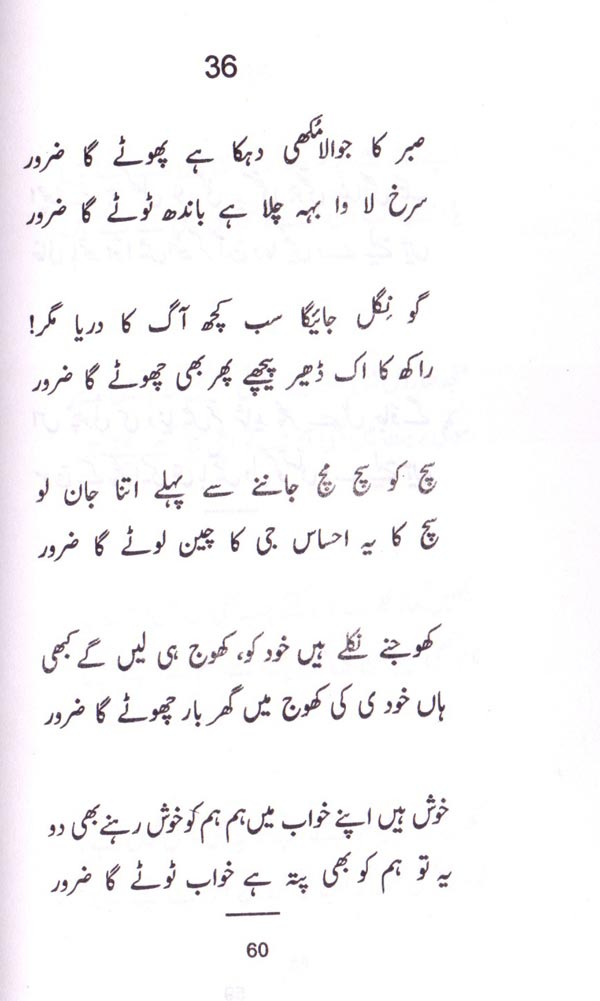 36
صبر کا جوالامُکھی دہکا ہے پھوٹے گا ضرور
سرخ لا وا بہہ چلا ہے باندھ ٹوٹے گا ضرور
گو نِگل جائیگا سب کچھ آگ کا دریا مگر!
راکھ کا اک ڈھیر پیچھے پھر بھی چھوٹے گا ضرور
سچ کو سچ مچ جاننے سے پہلے اتنا جان لو
سچ کا یہ احساس جی کا چین لوٹے گا ضرور
کھوجنے نکلے ہیں خود کو، کھوج ہی لیں گے کبھی
ہاں خود ی کی کھوج میں گھر بار چھوٹے گا ضرور
خوش ہیں اپنے خواب میں ہم ہم کو خوش رہنے بھی دو
یہ تو ہم کو بھی پتہ ہے خواب ٹوٹے گا ضرور
60